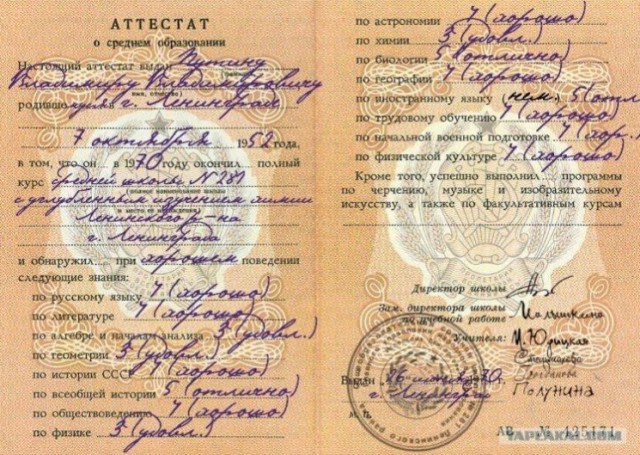 АТТЕСТАТ
о среднем образовании
Настоящий аттестат выдан Путину
Владимиру Владимировичу
имя, отчество)
родившемуся г. Ленинград
7 октября 1952 года,
в том, что он в 1970 году окончил полный
курс средней школы N 281
(полное наименование школы
с углубленным изучением химии
и место ее нахождения)
Ленинского р-на
г. Ленинграда
и обнаружил при хорошем поведении
следующие знания:
по русскому языку 4 (хорошо)
по литературе 4 (хорошо)
по алгебре и началам анализа 3 (удовл.)
по геометрии 3 (удовл.)
по истории СССР 4 (хорошо)
по всеобщей истории 5 (отлично)
по обществоведению 4 (хорошо)
по физике 3 (удовл.)
по астрономии 4 (хорошо)
по химии 3 (удовл.)
по биологии 5 (отлично)
по географии 4 (хорошо)
по иностранному языку (нем.) 5 (отл.
по трудовому обучению 4 (хорошо)
по начальной военной подготовке 4 (хор.)
по физической культуре 4 (хорошо)
Кроме того, успешно выполнил программы
по черчению, музыке и изобразительному
искусству, а также по факультативным курсам
Директор школы
Зам. директора школы
по учебной работе
Учителя:
М. Юрицкая
Богданова
Полунина
Выдан 26 1970
г. Ленинград
М.
АВ № 425174
YAPLAKAL.COM